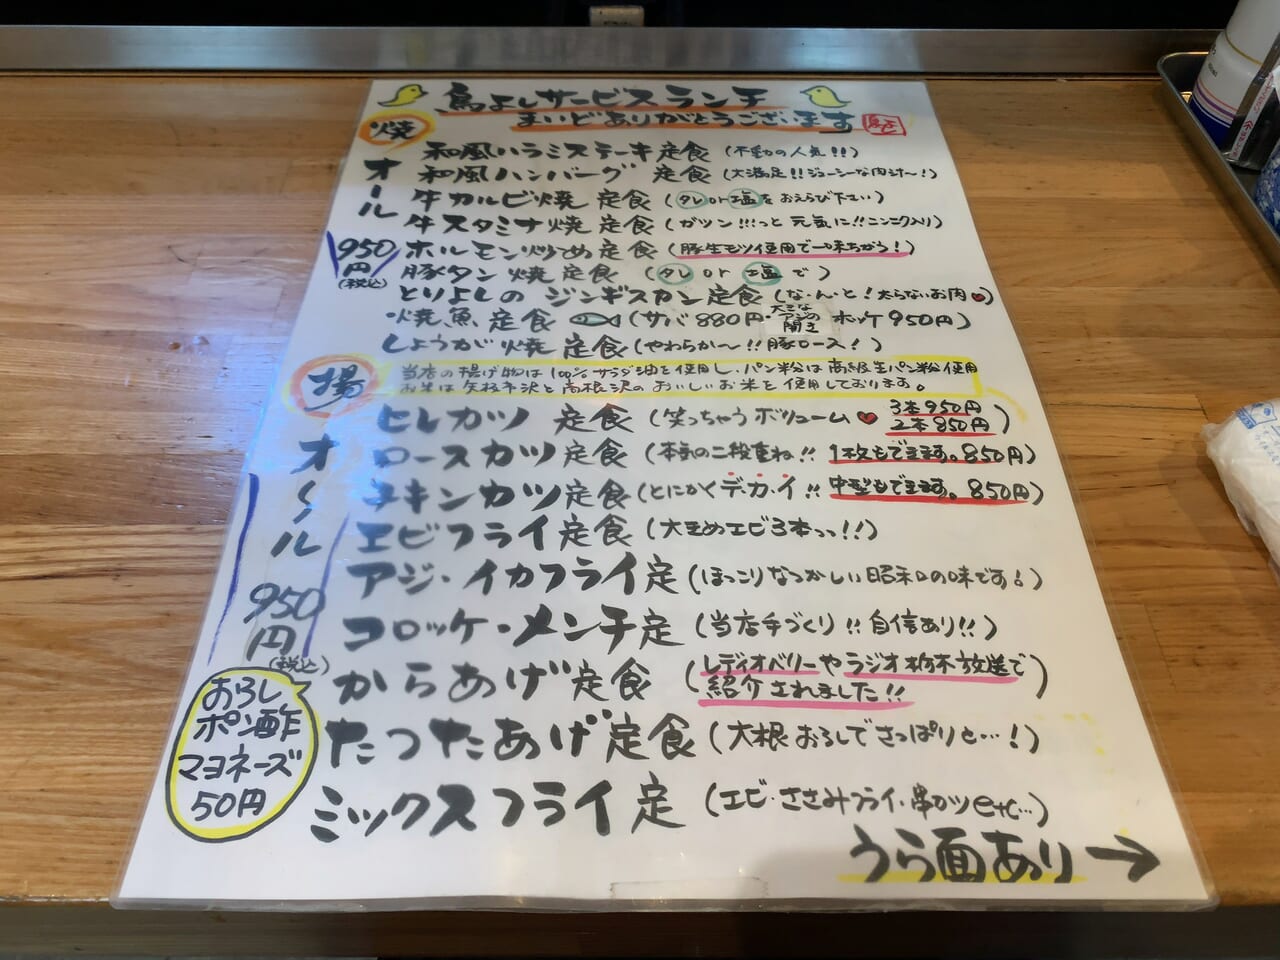 鳥よしサービスランチ
まいどありがとうございます
焼
オール
950円
(税込)
和風ハラミステーキ定食(不動の人気!!)
和風ハンバーグ 定食(大満足!!ジューシーな肉汁〜!)
牛カルビ焼 定食(タレor塩をおえらび下さい)
牛スタミナ焼 定食(ガツン!!!っと 元気に!!ニンニク入り)
ホルモン炒め定食(豚生モツ使用で一味ちがう!)
豚タン 焼 定食(タレ or 塩で)
とりよしの ジンギスカン定食(な・ん・と!太らないお肉♥)
焼魚 定食(サバ880円・大きなアジの開き ホッケ950円)
しょうが焼 定食(やわらか〜!!豚ロース!)
揚
当店の揚げ物は100%サラダ油を使用し、パン粉は高級生パン粉使用
お米は矢板平沢と高根沢のおいしいお米を使用しております。
オール
950円
(税込)
ヒレカツ 定食(笑っちゃうボリューム♥ 3本950円 2本850円)
ロースカツ定食(本気の二段重ね!! 1枚もできます。850円)
チキンカツ定食(とにかくデ・カ・イ!! 中型もできます。850円)
エビフライ定食(大きめエビ3本っっ!!)
アジ・イカフライ定(ほっこりなつかしい昭和の味です!)
コロッケ・メンチ定(当店手づくり!!自信あり!!)
からあげ定食(レディオベリーやラジオ栃木放送で紹介されました!!)
たつたあげ定食(大根おろしでさっぱりと…!)
ミックスフライ定(エビ・ささみフライ・串カツetc…)
おろし
ポン酢
マヨネーズ
50円
うら面あり→